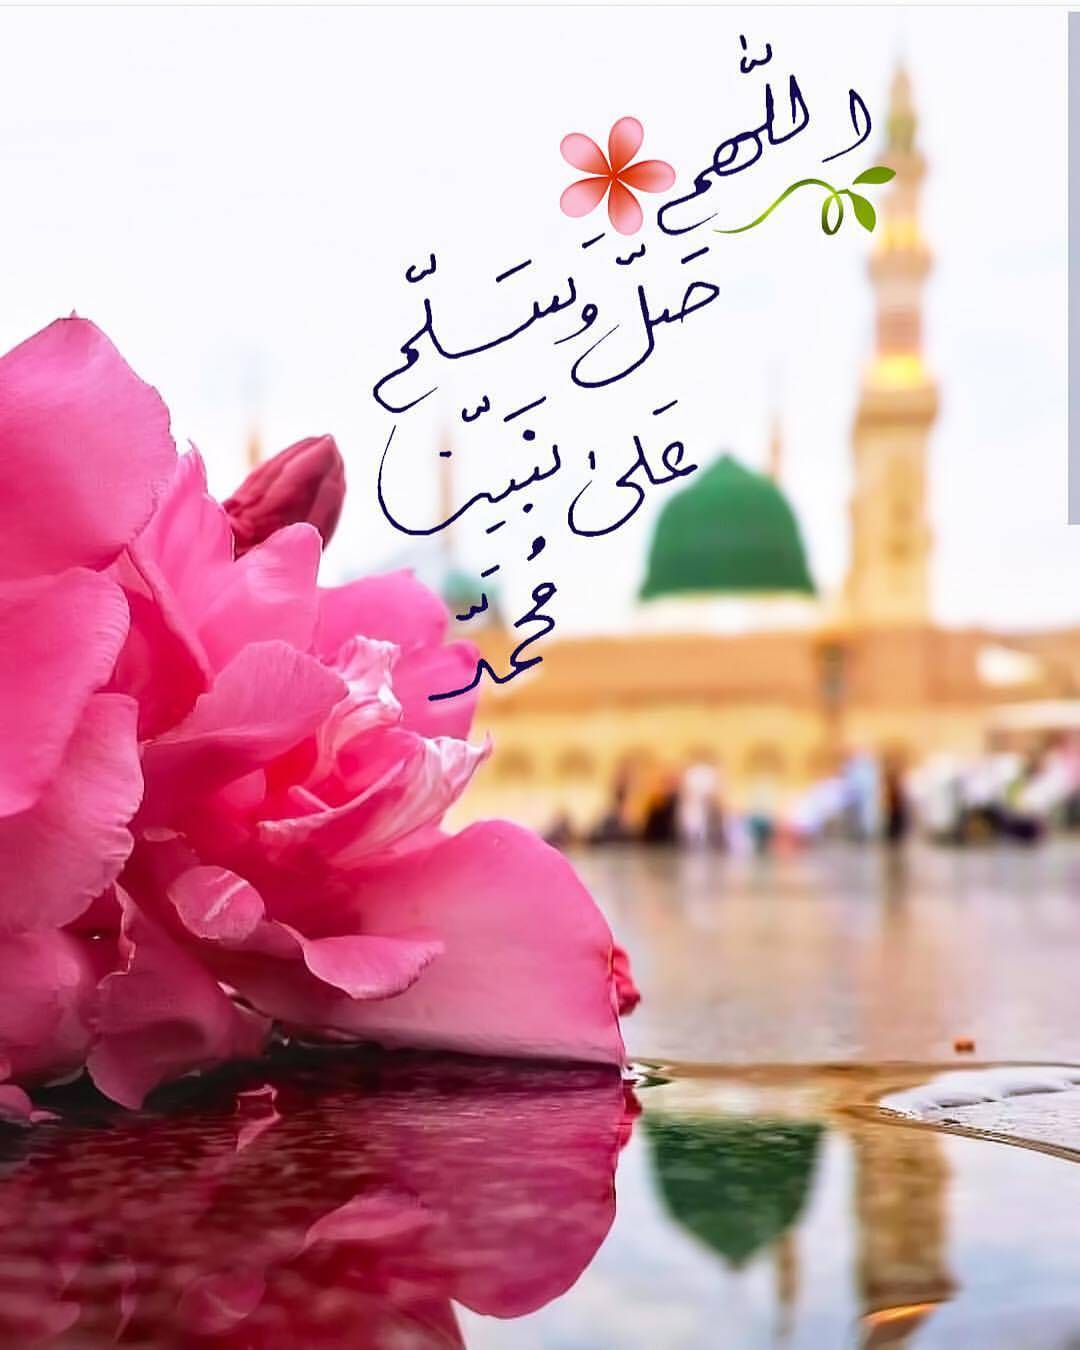 اللّهم
صَلّ وَسَلّم
عَلىٰ نَبَيّنا
مُحمَّد